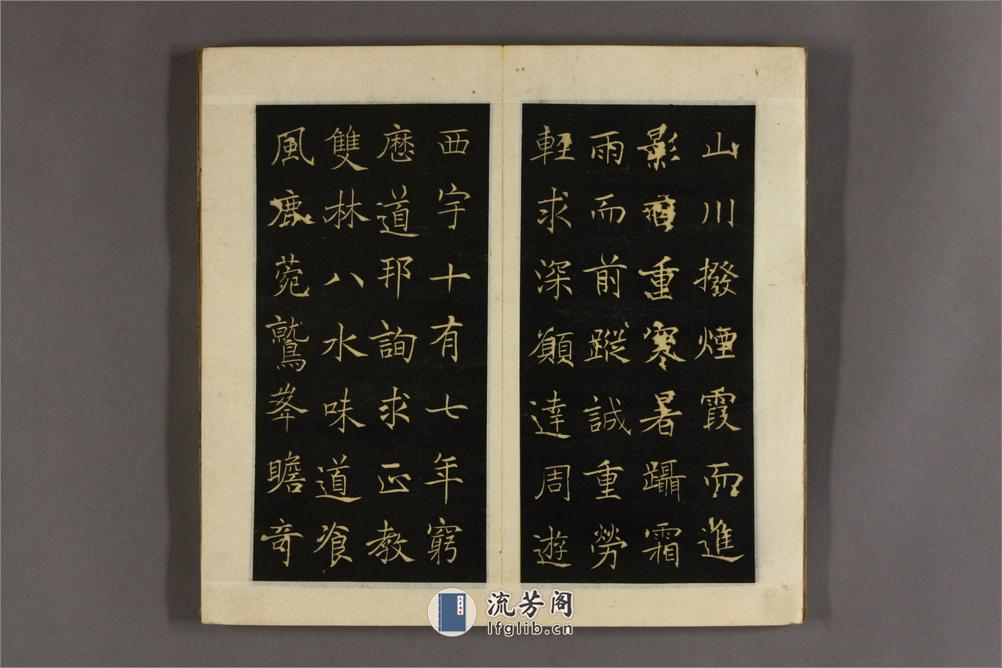 山川撥煙霞而進
影百重寒暑躡霜
雨而前蹤誠重勞
輕求深願達周遊
西宇十有七年窮
歷道邦詢求正教
雙林八水味道飡
風鹿菀鷲峯瞻奇
流芳阁
lfglib.cn